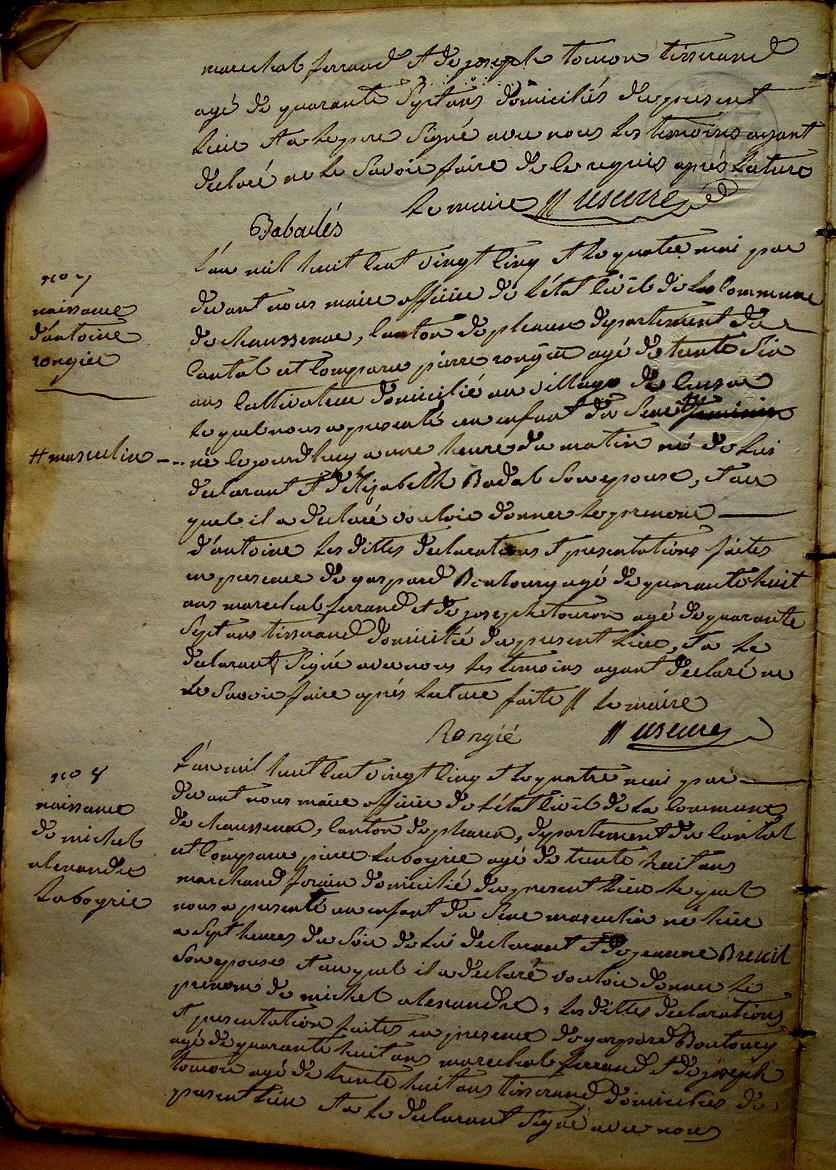 marechal ferrand et de joseph touron tisserand
agé de quarante Sept ans domiciliés du present
lieu et a le pere Signé avec nous les temoins ayant
declaré ne le Savoir faire de le requis après lecture
Le maire
Babadés
L'an mil huit cent vingt cinq et le quatre mai par
no 7
devant nous maire officier de l'état civil de la Commune
naissance
de chaussenac, Canton de pleaux departement du
d'antoine
Cantal est Comparu pierre rongier agé de trente Six
rongier
ans Cultivateur domicilié au village de
le quel nous a presenté un enfant du Sexe # feminin
# masculin
né le jourd'huy a une heure du matin né de lui
declarant et d'Elizabeth Badal Son epouse, et au
quel il a declaré vouloir donner le prenom
d'antoine les dittes declarations et presentations faites
en presence de gaspard Boutoury agé de quarante huit
ans marechal ferrand et de joseph touron agé de quarante
Sept ans tisserand domicilié du present lieu, et a le
declarant Signé avec nous les temoins ayant declaré ne
le Savoir faire après lecture faite // Le maire
Rongié
L'an mil huit cent vingt cinq et le quatre mai par
no 8
devant nous maire officier de l'état civil de la Commune
naissance
de chaussenac, Canton de pleaux, departement du Cantal
de michel
est Comparu pierre Labogrie agé de trente huit ans
alexandre
marchand forain domicilié du present lieu le quel
Labogrie
nous a presenté un enfant du Sexe masculin né hier
a Sept heures du Soir de lui declarant et de jeanne Breuil
Son epouse et au quel il a declaré vouloir donner le
prenom de michel alexandre, les dittes declarations
et presentation faites en presence de gaspard Boutoury
agé de quarante huit ans marechal ferrand et de joseph
touron agé de trente huit ans tisserand domiciliés du
present lieu et a le declarant Signé avec nous